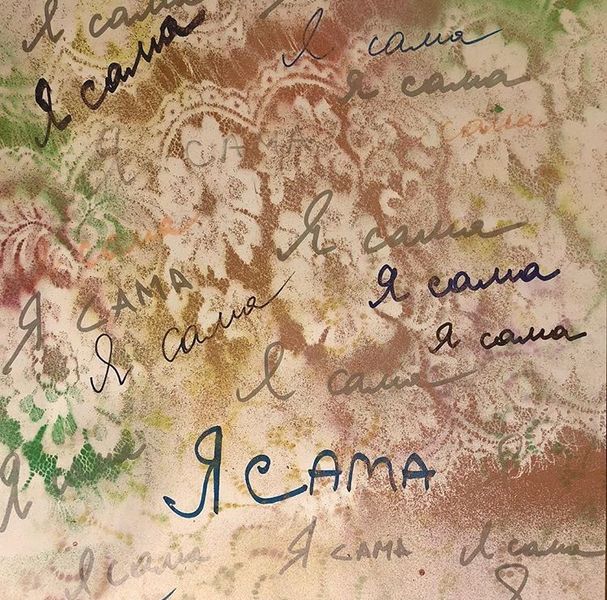 Я сама
Я сама
Я сама
Я сама
сама
Я сама
сама
Я сама
Я сама
Я сама
Я сама
Я сама
Я сама
Я сама
Я сама
Я сама
Я сама
Я сама
Я